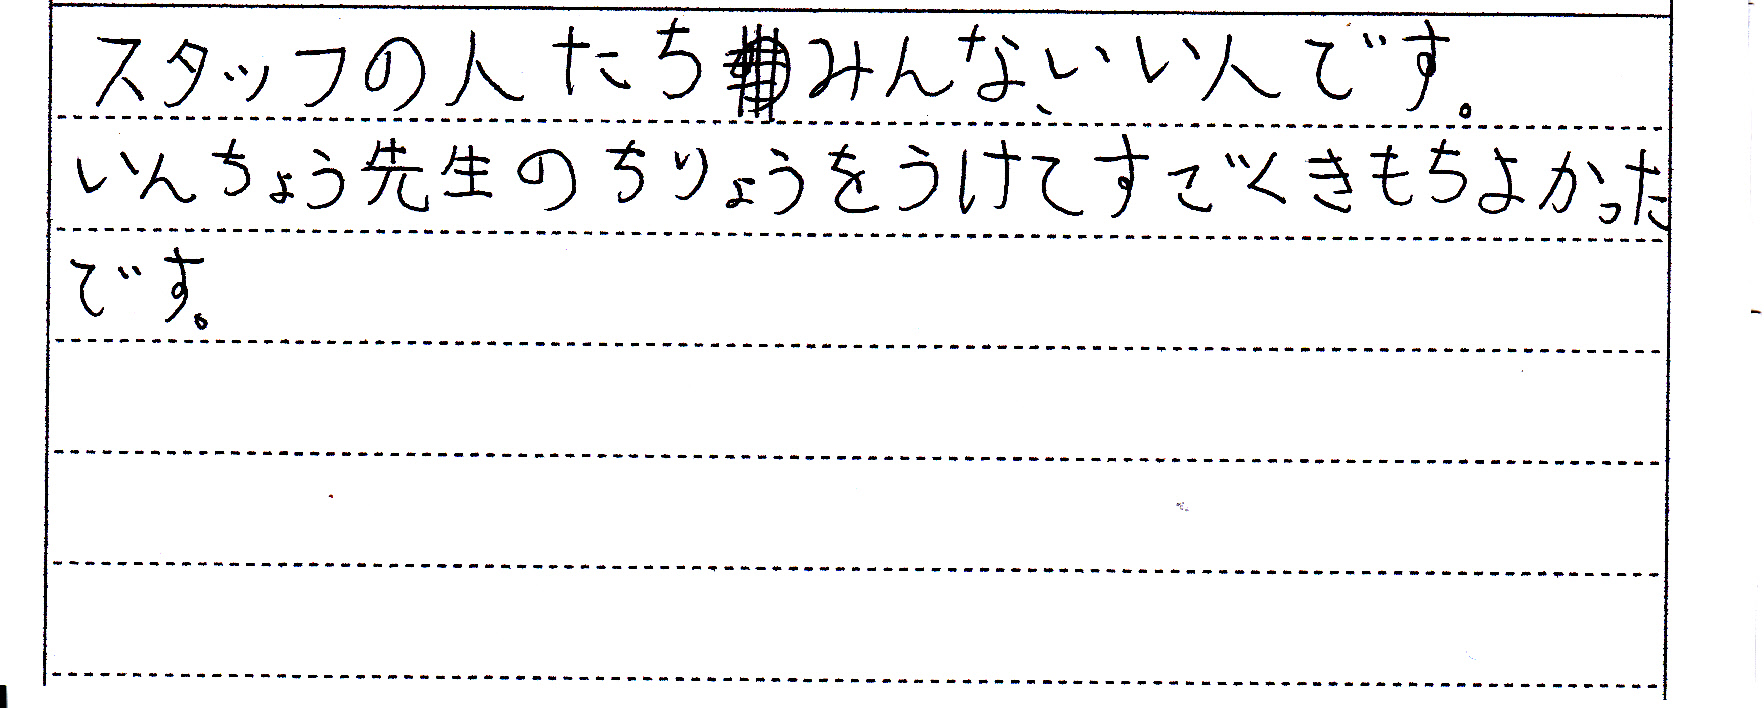 スタッフの人たちみんな、いい人です。
いんちょう先生のちりょうをうけてすごくきもちよかった
です。